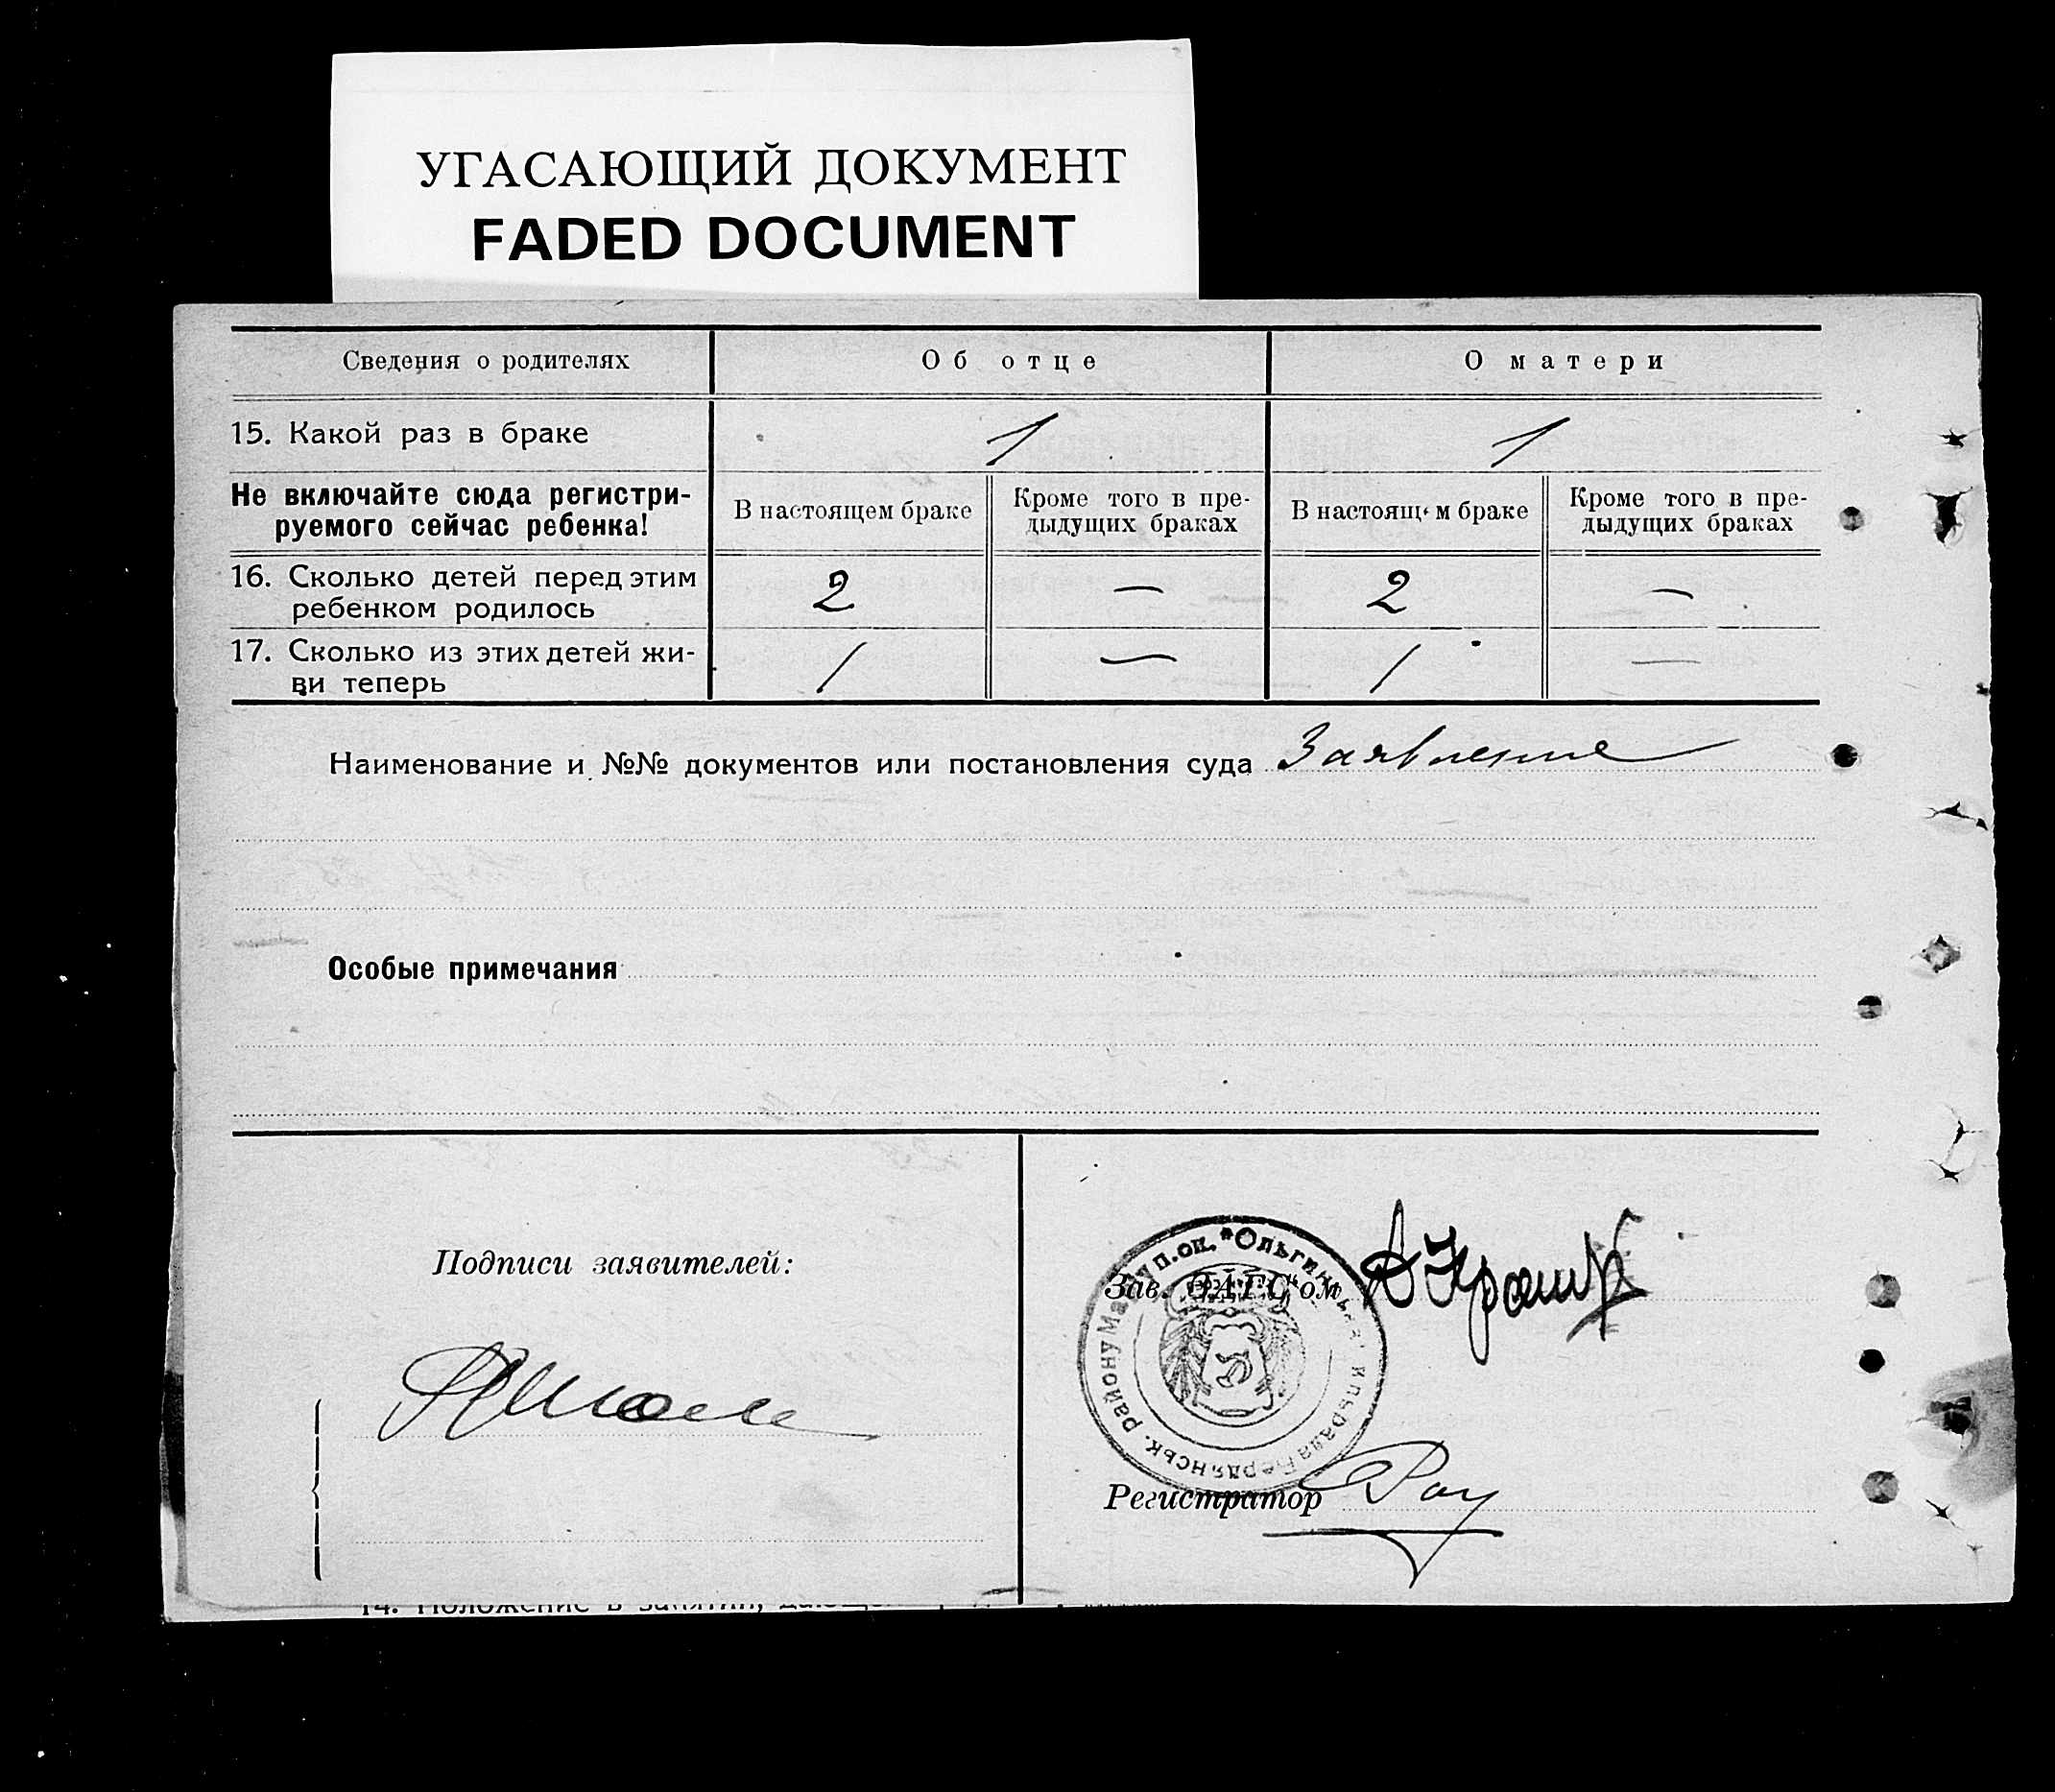 УГАСАЮЩИЙ ДОКУМЕНТ
FADED DOCUMENT
Сведения о родителях Об отце О матери
15. Какой раз в браке 1 1
Не включайте сюда регистри-
руемого сейчас ребенка!
В настоящем браке
Кроме того в пре-
дыдущих браках
В настоящ м браке
Кроме того в пре-
дыдущих браках
16. Сколько детей перед этим
ребенком родилось
2 — 2 —
17. Сколько из этих детей жи-
ви теперь
1 — 1 —
Наименование и №№ документов или постановления суда Заявление
Особые примечания
Подписи заявителей:
Зав. ЗАГС'ом
Регистратор
14. Положение в занятии,